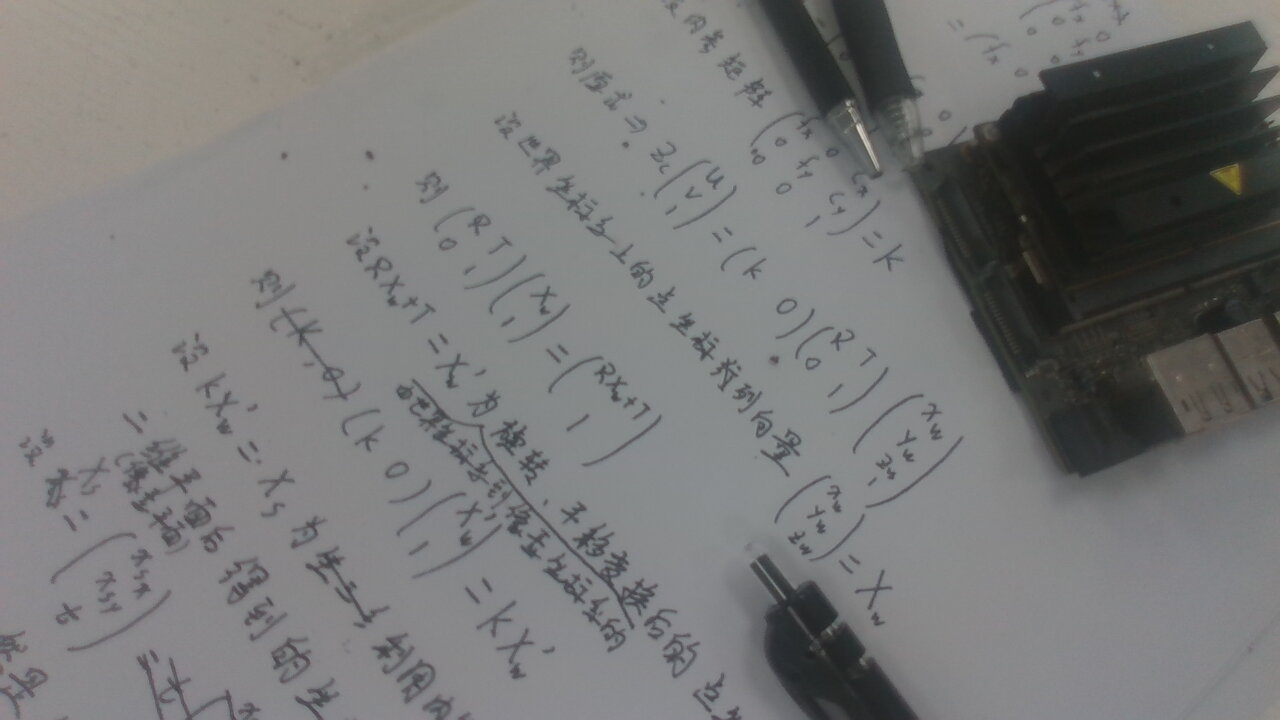 = (fx 0
0 fy 0
内参矩阵 (fx 0 cx
0 fy cy
0 0 1) = K
则原式 ⇒ Zc (u
v
1) = (K 0) (R T
0 1) (xw
yw
zw
1)
设世界坐标系上的点坐标为列向量 (xw
yw
zw) = Xw
则 (R T
0 1) (Xw
1) = (RXw+T
1)
设 RXw+T = Xw' 为旋转、平移变换后的点
由世界坐标系到像素坐标系的
则 (K 0) (K 0) (Xw'
1) = KXw'
设 KXw' = Xs 为 利用内
二维平面后得到的
(像素平面)
设 Xs = (xsx
xsy
t) =